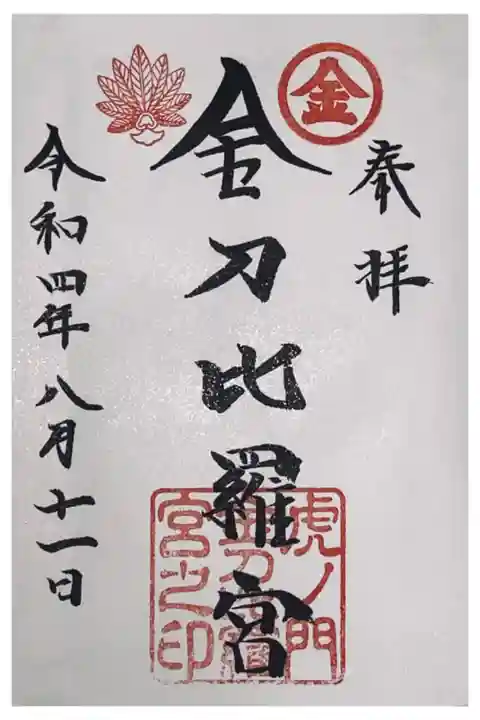 奉拝
金
金刀比羅宮
虎ノ門
金刀比羅
宮之印
令和四年八月十一日